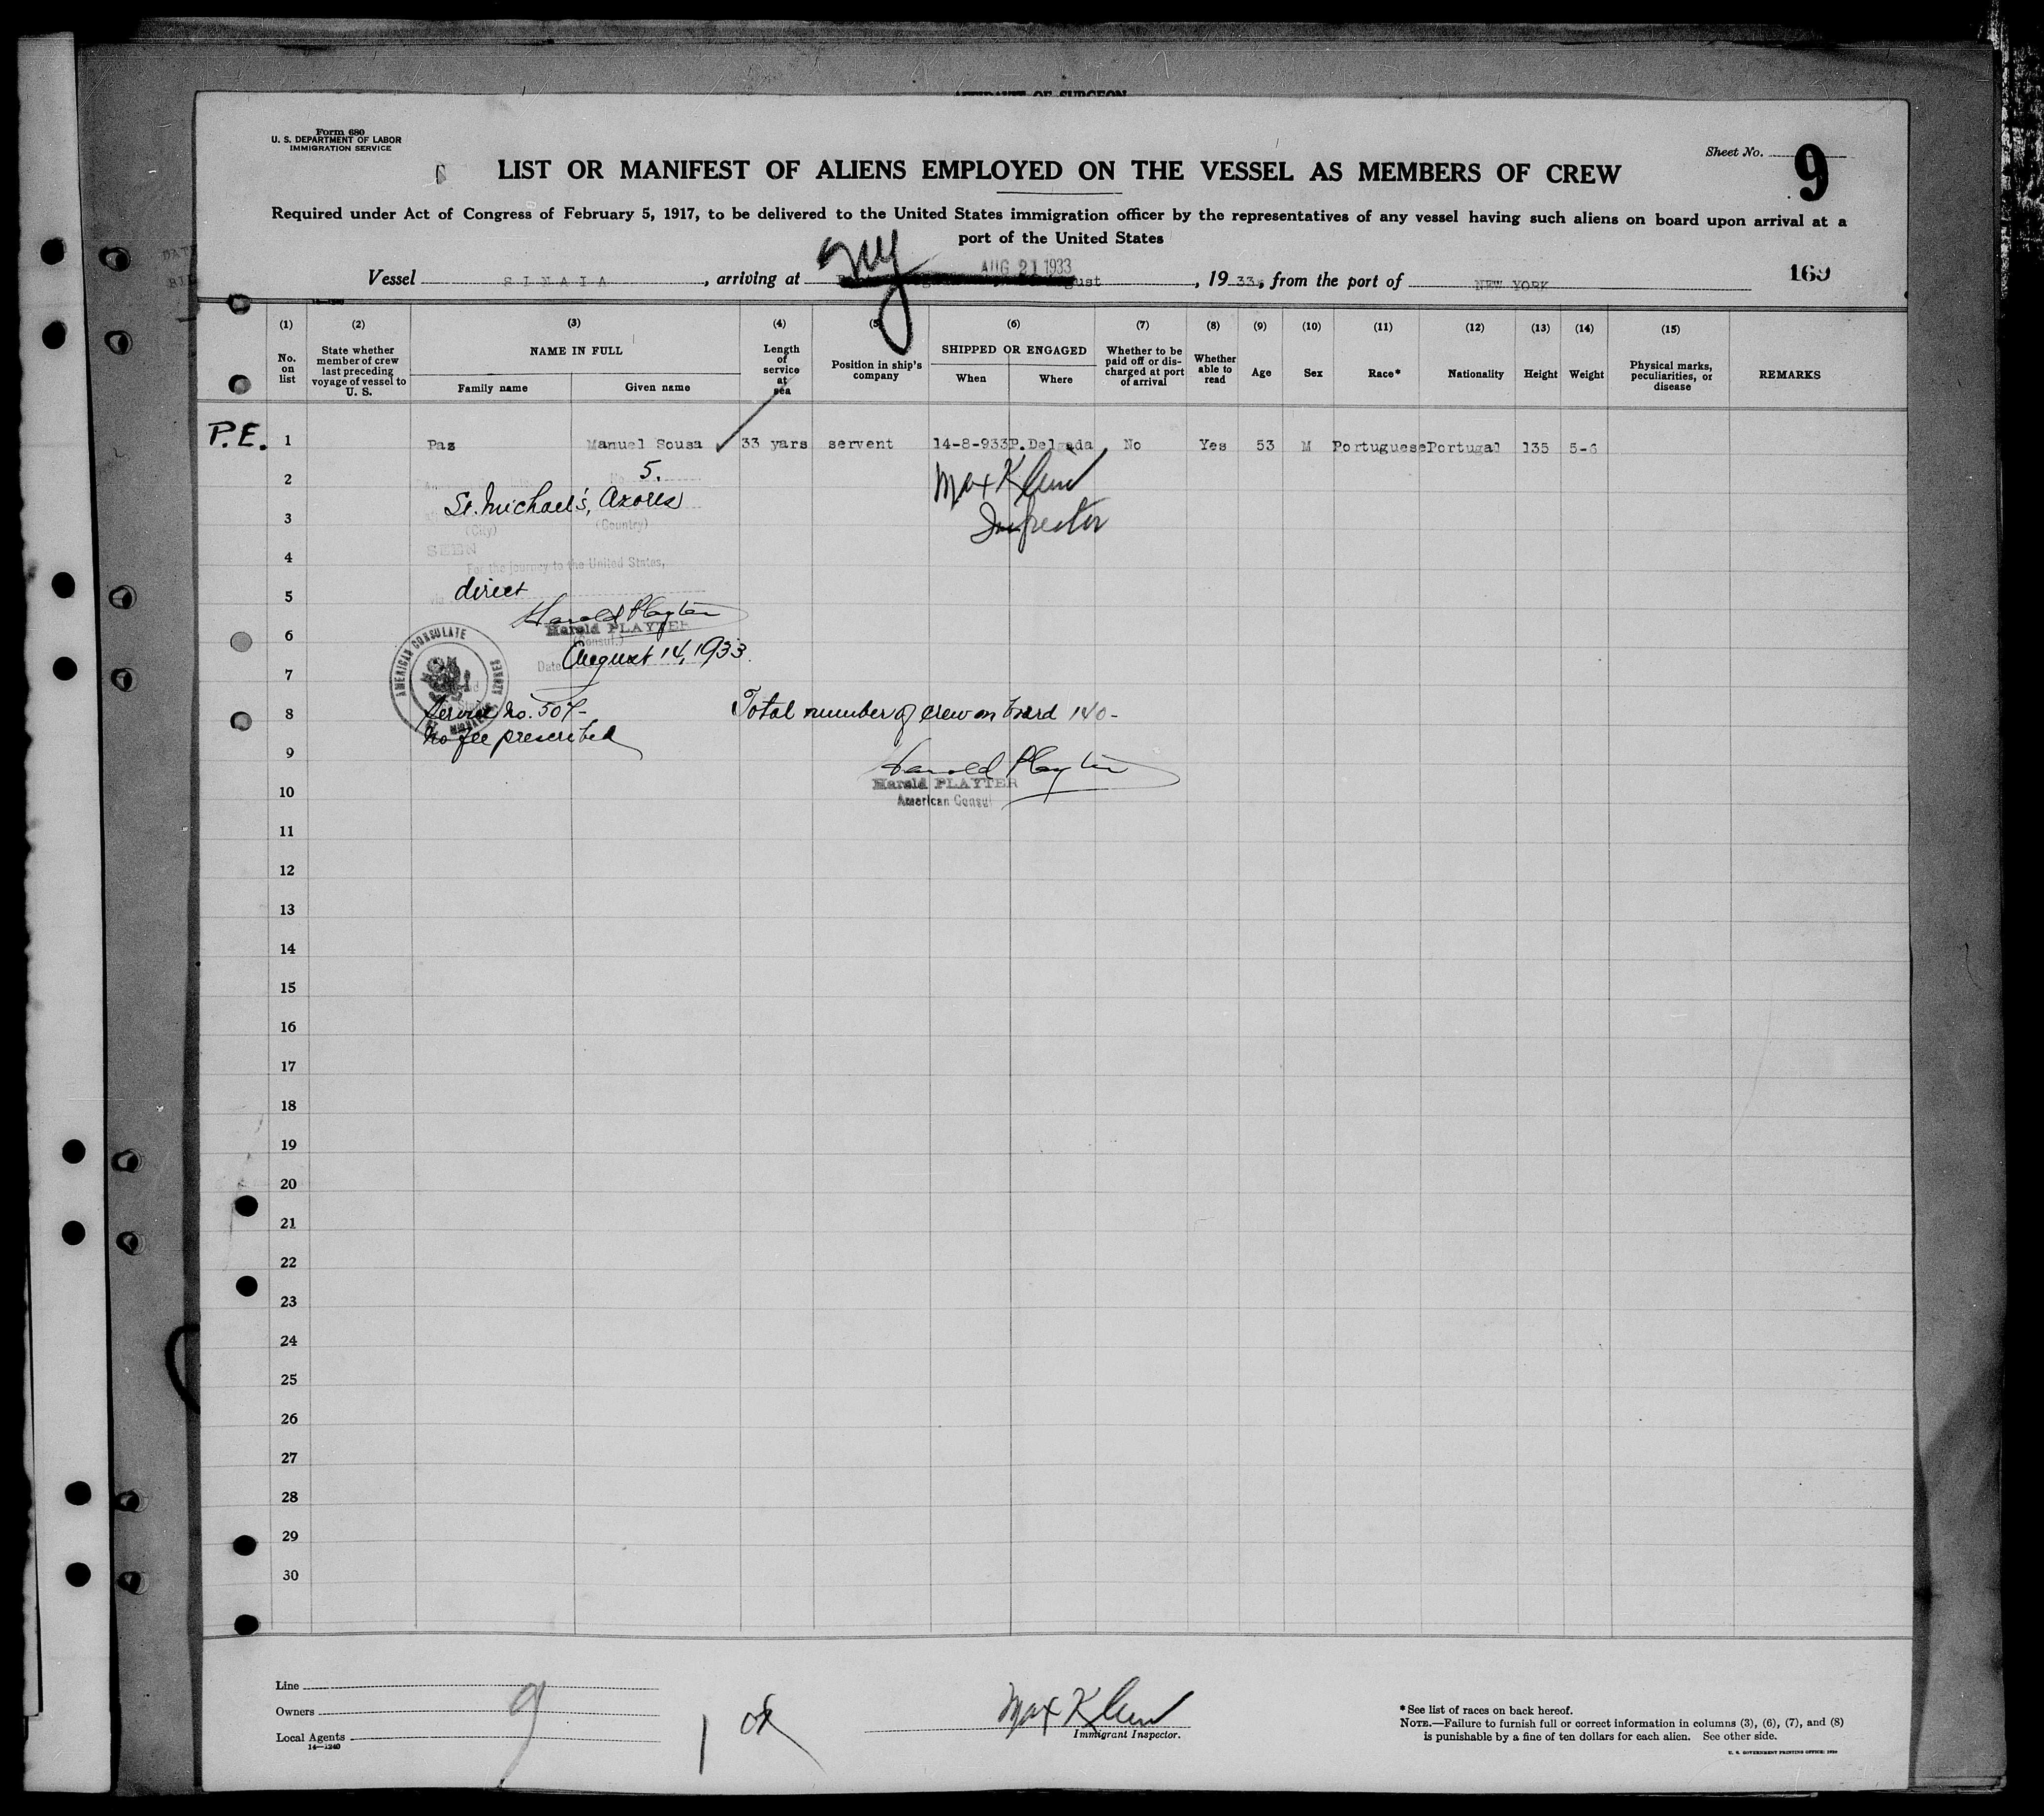 AFFIDAVIT OF SURGEON
Form 680
U. S. DEPARTMENT OF LABOR
IMMIGRATION SERVICE
Sheet No. 9
LIST OR MANIFEST OF ALIENS EMPLOYED ON THE VESSEL AS MEMBERS OF CREW
Required under Act of Congress of February 5, 1917, to be delivered to the United States immigration officer by the representatives of any vessel having such aliens on board upon arrival at a
port of the United States
Vessel SINAIA, arriving at NY AUG 21 1933, 1933, from the port of NEW YORK
169
(1) (2) (3) (4) (5) (6) (7) (8) (9) (10) (11) (12) (13) (14) (15)
No. on list
State whether member of crew last preceding voyage of vessel to U. S.
NAME IN FULL
Family name
Given name
Length of service at sea
Position in ship's company
SHIPPED OR ENGAGED
When
Where
Whether to be paid off or discharged at port of arrival
Whether able to read
Age
Sex
Race*
Nationality
Height
Weight
Physical marks, peculiarities, or disease
REMARKS
P.E. 1 Paz Manuel Sousa 33 yars servent 14-8-933 P. Delgada No Yes 53 M Portuguese Portugal 135 5-6
2 5. Max Klein
3 St. Michael's, Azores Inspector
(City) (Country)
4 SEEN
For the journey to the United States,
5 via direct
Harold Playter
6 Harold PLAYTER
(Consul.)
Date August 14, 1933.
7
AMERICAN CONSULATE
ST. MICHAEL'S AZORES
8 Service No. 507- Total number of crew on board 140-
No fee prescribed
9 Harold Playter
10 Harold PLAYTER
American Consul
11
12
13
14
15
16
17
18
19
20
21
22
23
24
25
26
27
28
29
30
Line
Owners
Local Agents
14—1240
9
1 ok
Max Klein
Immigrant Inspector.
* See list of races on back hereof.
NOTE.—Failure to furnish full or correct information in columns (3), (6), (7), and (8)
is punishable by a fine of ten dollars for each alien. See other side.
U. S. GOVERNMENT PRINTING OFFICE: 1930